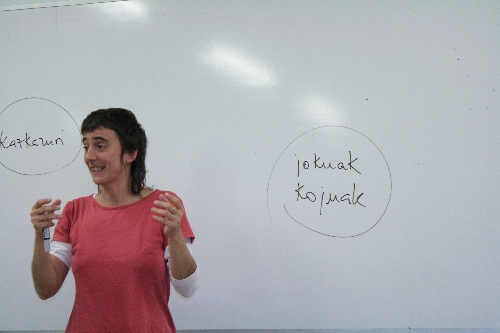 kazkazuri
jokuak
kojuak